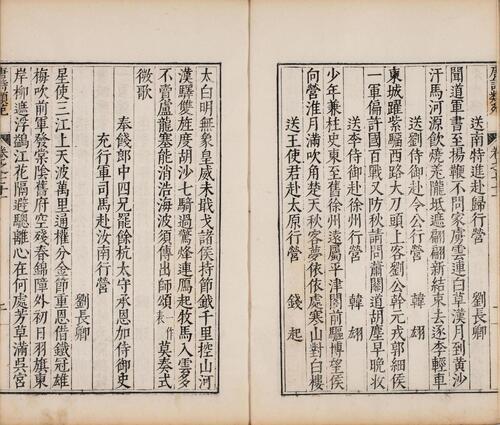 送南特進赴歸行營
聞道軍書至揚鞭不問家虜雲連白草漢月到黃沙
汗馬河源飲燒羌隴坻遮翩翩新結束去逐李輕車
送劉侍御赴令公行營 韓翃
東城躍紫騮西路大刀頭上客劉公幹元戎郭細侯
一軍偏許國百戰又防秋請問蕭關道胡塵早晚收
送李侍御赴徐州行營 韓翃
少年兼柱史東至舊徐州遠屬平津閣前驅博望侯
向營淮月滿吹角楚天秋客夢依依處寒山對白樓
送王使君赴太原行營 錢起
太白明無象皇威未戢戈諸侯持節鉞千里控山河
漢驛雙旌度胡沙七騎過驚烽連鴈起牧馬入雲多
不賣盧龍塞能消浩海波須傳出師頌一作表莫奏式
微歌
奉餞郎中四兄罷餘杭太守承恩加侍御史
充行軍司馬赴汝南行營 劉長卿
星使三江上天波萬里通權分金節重恩借鐵冠雄
梅吹前軍發棠陰舊府空殘春錦障外初日羽旗東
岸柳遮浮鷁江花隔避驄離心在何處芳草滿吳宮